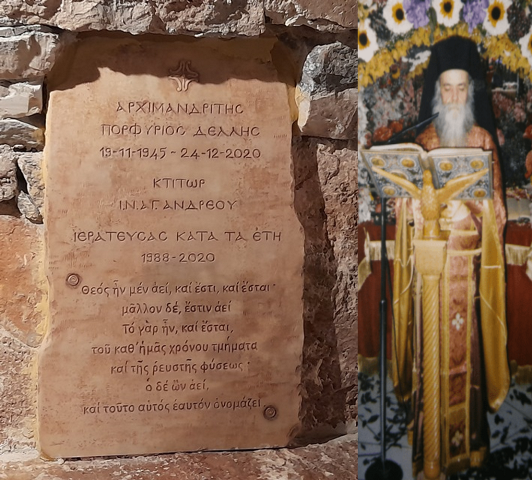 ΑΡΧΙΜΑΝΔΡΙΤΗΣ
ΠΟΡΦΥΡΙΟΣ ΔΕΛΛΗΣ
19-11-1945 - 24-12-2020
ΚΤΙΤΩΡ
Ι.Ν.ΑΓ.ΑΝΔΡΕΟΥ
ΙΕΡΑΤΕΥΣΑΣ ΚΑΤΑ ΤΑ ΕΤΗ
1988-2020
Θεός ἦν μέν ἀεί, καί ἔστι, καί ἔσται·
μᾶλλον δέ, ἔστιν ἀεί
Τό γάρ ἦν, καί ἔσται,
τοῦ καθ' ἡμᾶς χρόνου τμήματα
καί τῆς ῥευστῆς φύσεως·
ὁ δέ ὤν ἀεί,
καί τοῦτο αὐτός ἑαυτόν ὀνομάζει